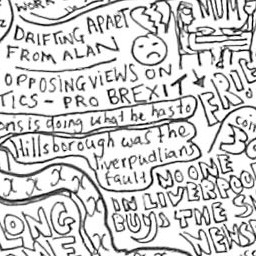 WORK
DRIFTING APART
FROM ALAN
MUM
OPPOSING VIEWS ON
TICS - PRO BREXIT
FRIE
ons is doing what he has to
Hillsborough was the
liverpudlians
fault
coi
NO ONE
IN LIVERPOO
BUYS THE S
NEWS
LONG